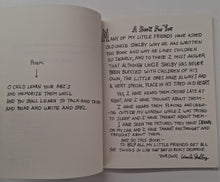 Poem
O CHILD LEARN YOUR ABC'S
AND MEMORIZE THEM WELL
AND YOU SHALL LEARN TO TALK AND THINK
AND READ AND WRITE AND SPEL.
A Story For You
MANY OF MY LITTLE FRIENDS HAVE ASKED
OLD UNCLE SHELBY WHY HE HAS WRITTEN
THIS BOOK AND WHY HE LOVES CHILDREN
SO DEARLY, AND TO THESE I MUST ANSWER
THAT ALTHOUGH UNCLE SHELBY HAS NEVER
BEEN BLESSED WITH CHILDREN OF HIS
OWN, THE LITTLE ONES HAVE ALWAYS HAD
A VERY SPECIAL PLACE IN HIS TIRED OLD HEART.
YES, I HAVE HEARD THEM CRYING LATE AT
NIGHT, AND I HAVE THOUGHT ABOUT THEM—
I HAVE HEARD THEM
AND I HAVE THOUGHT ABOUT THEM.
I HAVE SEEN THE PICTURES THEY HAVE DRAWN
ON MY CAR AND I HAVE THOUGHT AND THOUGHT
AND THOUGHT ABOUT THEM.
AND SO THIS BOOK—
TO HELP ALL MY LITTLE FRIENDS GET ALL
THE THINGS IN LIFE THAT THEY SO RICHLY DESERVE.
Uncle Shelby